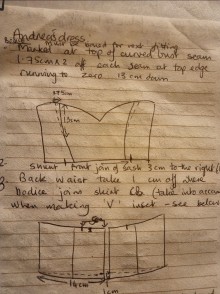 Andrea dress
Must be boned for next fitting
Marked at top of curved bust seam
1.75cm x 2 off each seam at top edge
running to zero 13cm down
1.75cm
13cm
2. shunt front join of sash 3cm to the right
3. Back waist take 1 cm off where
bodice joins skirt CB (take into account
when making 'V' inset - see below
14cm
1cm